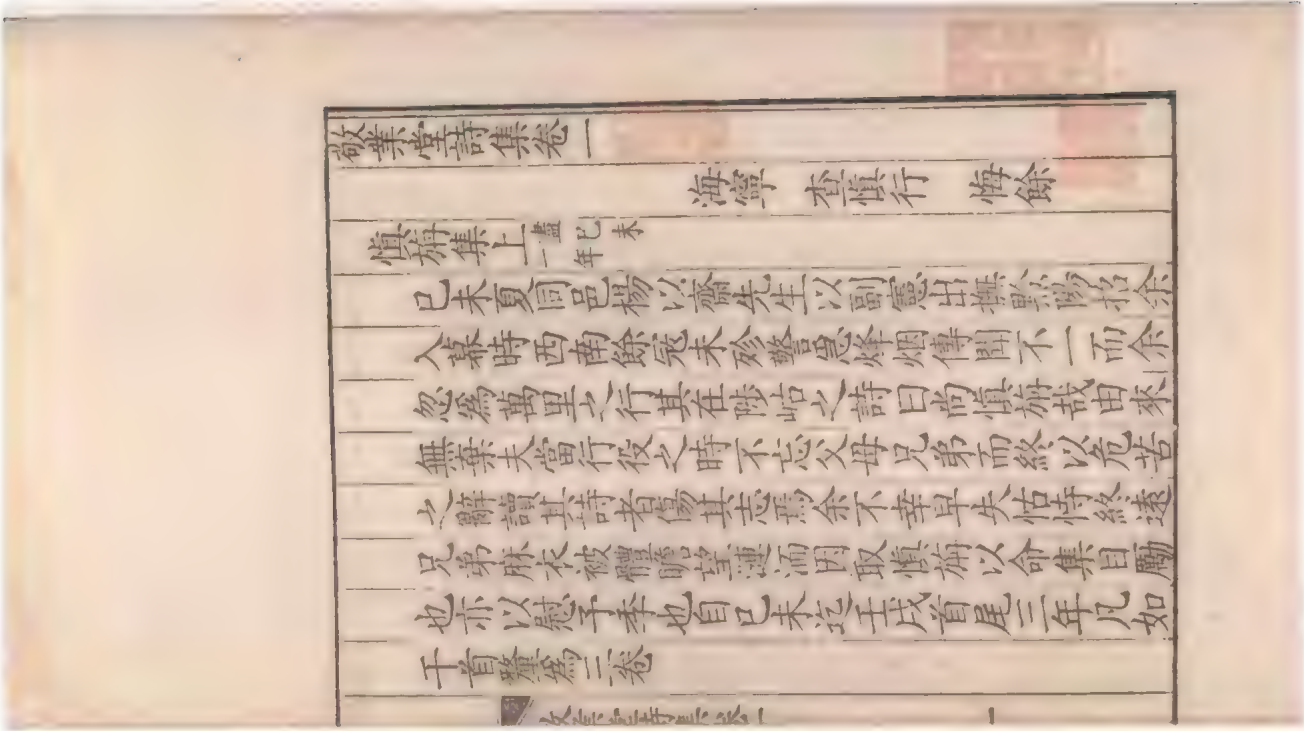 敬業堂詩集卷一
海寧 查慎行 悔餘
慎旃集上 盡己未一年
己未夏同邑楊以齋先生以副憲出撫黔陽招余
入幕時西南餘寇未殄警急烽烟傳聞不一而余
忽為萬里之行其在陟岵之詩曰尚慎旃哉由來
無棄夫當行役之時不忘父母兄弟而終以危苦
之辭讀其詩者傷其志焉余不幸早失怙恃終遠
兄弟麻衣被體瞻望漣洏因取慎旃以命集自勵
也亦以慰予季也自己未迄壬戌首尾三年凡如
干首釐為二卷
敬業堂詩集卷一 一